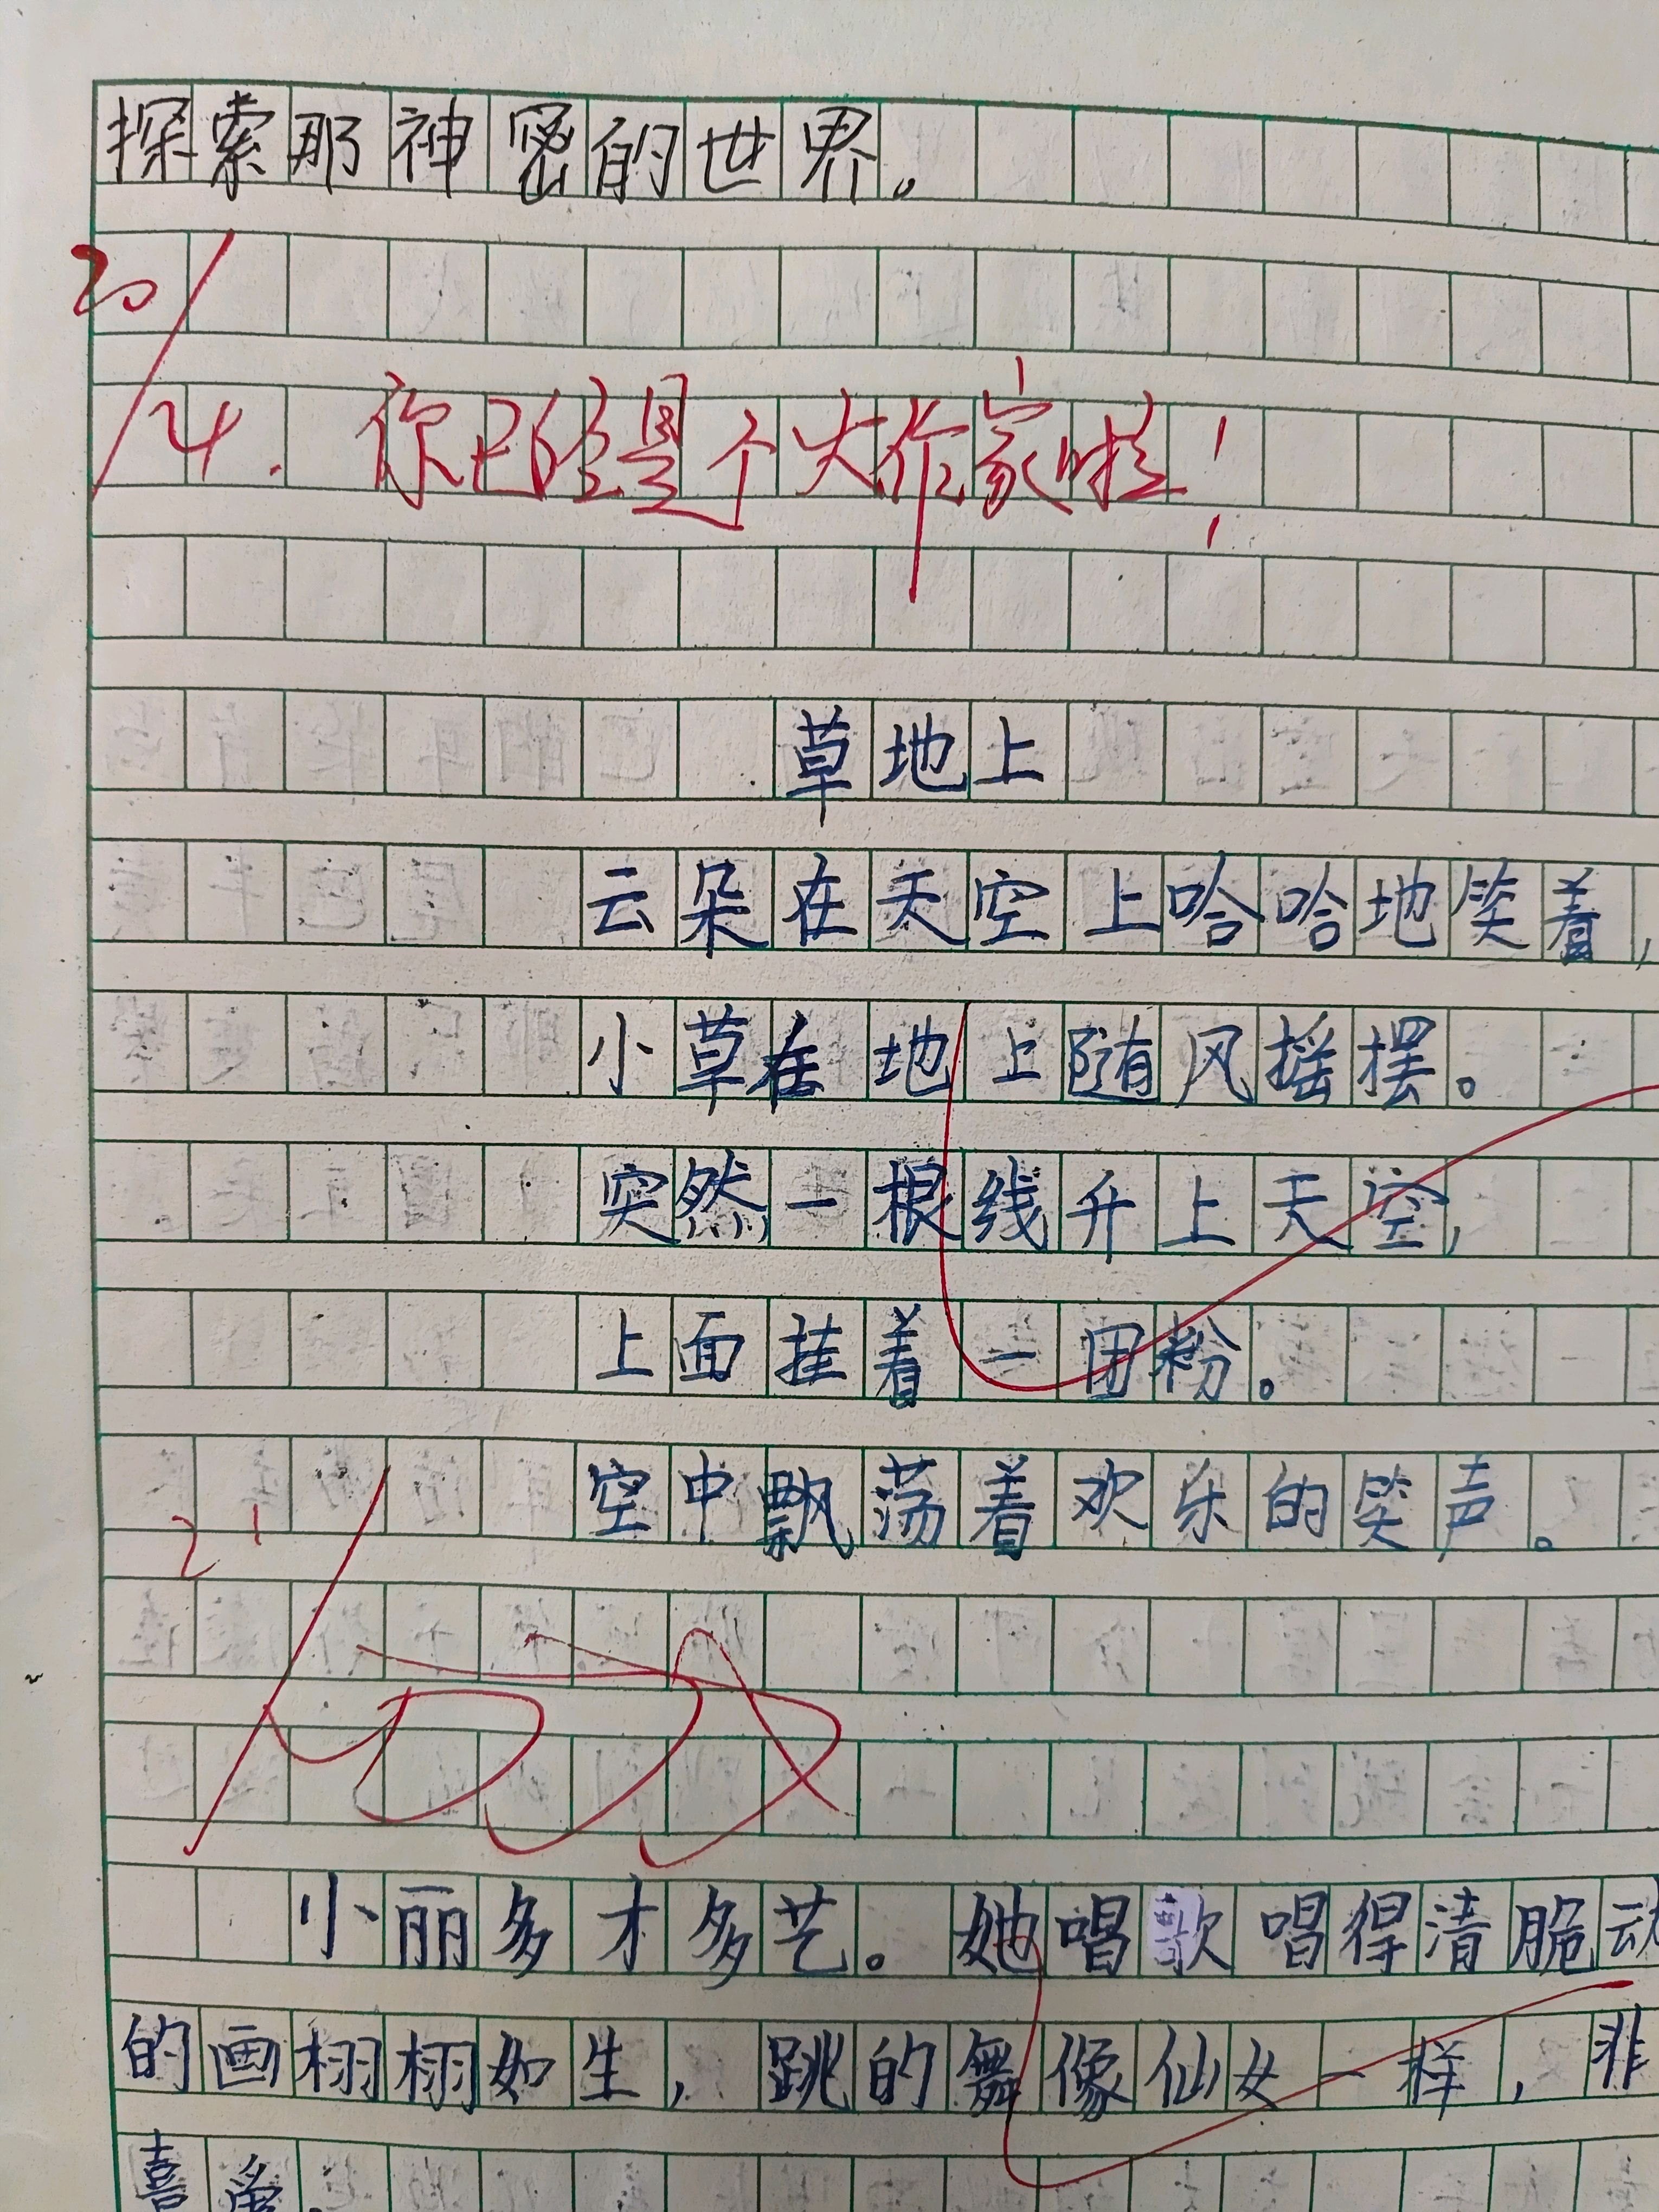 探索那神密的世界。
20/4.
你已经是个大作家啦!
草地上
云朵在天空上哈哈地笑着,
小草在地上随风摇摆。
突然一根线升上天空,
上面挂着一团粉。
空中飘荡着欢乐的笑声。
21
小丽多才多艺。她唱歌唱得清脆动
的画栩栩如生,跳的舞像仙女一样,非
喜爱